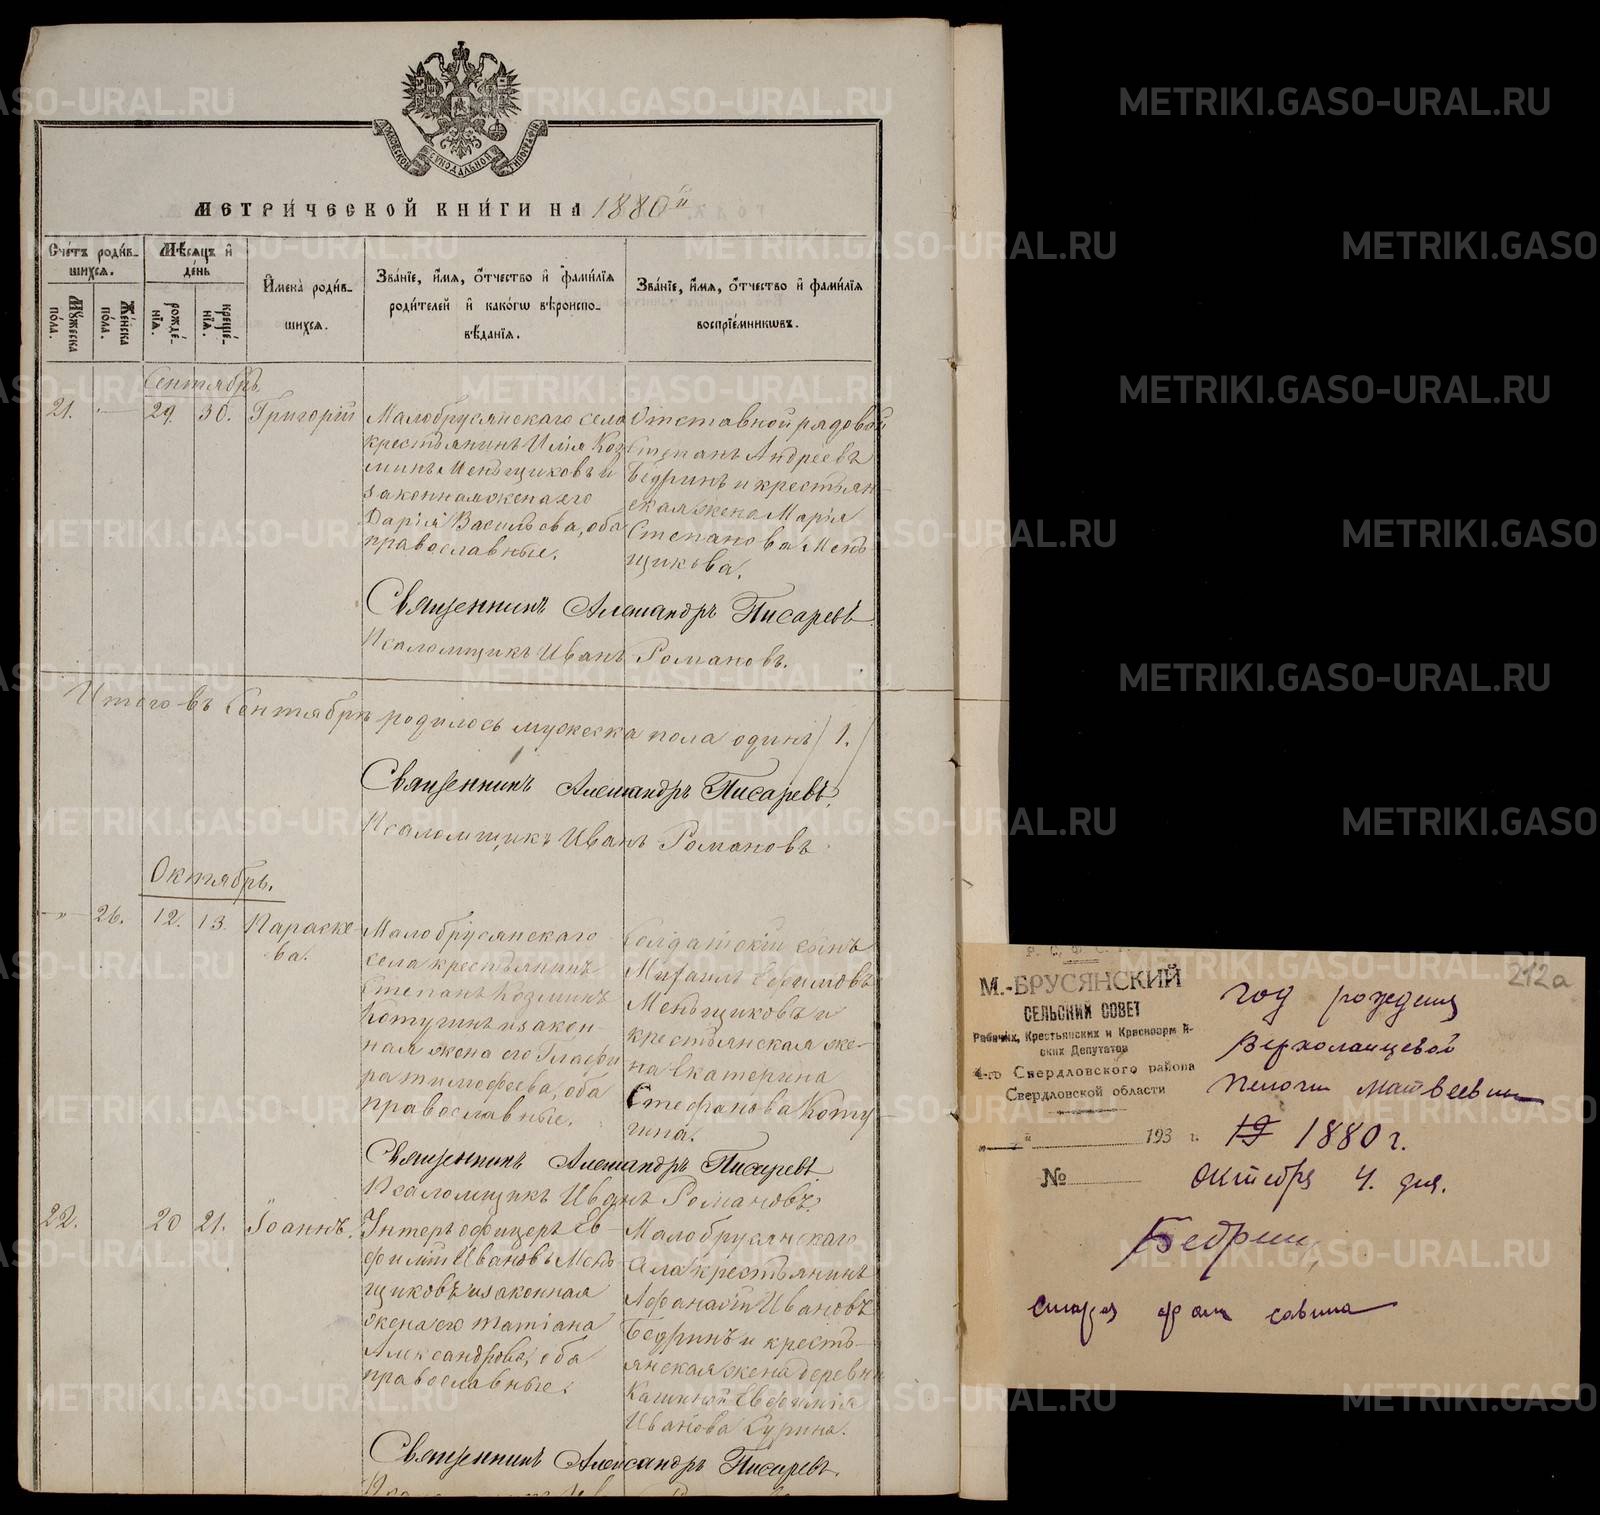 МОСКОВСКОЙ СѴНОДАЛЬНОЙ ТИПОГРАФІИ
МЕТРИ́ЧЕСКОЙ КНИ́ГИ НА 1880й
Сче́тъ роди́в-
шихся.
Мѣ́сяцъ и҆
де́нь
И҆мена̀ роди́в-
шихся.
Зва́нїе, и҆́мя, ѻ҆́тчество и҆ фами́лїя
роди́телей и҆ како́гѡ вѣроиспо-
вѣ́данїя.
Зва́нїе, и҆́мя, ѻ҆́тчество и҆ фами́лїя
воспрїе́мникѡвъ.
Мꙋ́жеска
по́ла.
Же́нска
по́ла.
рожде́-
нїя.
креще́-
нїя.
Сентябрь
21. " 29. 30. Григорій
Малобрусянскаго села
крестьянинъ Илія Коз
минъ Меньщиковъ и
законная жена его
Дарія Васильева, оба
православные.
Отставной рядовой
Степанъ Андреевъ
Бедринъ и крестьян-
ская жена Марія
Степанова Мень
щикова.
Священникъ Александръ Писаревъ.
Псаломщикъ Иванъ Романовъ.
Итого въ Сентябрѣ родилось мужеска пола одинъ /1./
Священникъ Александръ Писаревъ.
Псаломщикъ Иванъ Романовъ
Октябрь.
" 26. 12. 13. Параске
ва.
Малобрусянскаго
села крестьянинъ
Степанъ Козминъ
Котугинъ и закон-
ная жена его Глафи
ра Тимофеева, оба
православные.
Солдатскій сынъ
Михаилъ Ефимовъ
Меньщиковъ и
крестьянская же-
на Екатерина
Стефанова Коту-
гина.
Священникъ Александръ Писаревъ.
Псаломщикъ Иванъ Романовъ.
22. 20 21. Іоаннъ.
Унтеръ офицеръ Ев-
фимій Ивановъ Мень
щиковъ и законная
жена его Татіана
Александрова, оба
православные.
Малобрусянскаго
села крестьянинъ
Афанасій Ивановъ
Бедринъ и кресть-
янская жена деревни
Евфимія
Иванова
Священникъ Александръ Писаревъ.
М.-БРУСЯНСКИЙ
СЕЛЬСКИЙ СОВЕТ
Рабочих, Крестьянских и Красноарм й-
ских Депутатов
4-го Свердловского района
Свердловской области
" " 193 г.
№
212а
год рождения
Верхоланцевой
Матвеевны
19 1880 г.
октября 4. дня.
Бедрин
старая фам савина
METRIKI.GASO-URAL.RU